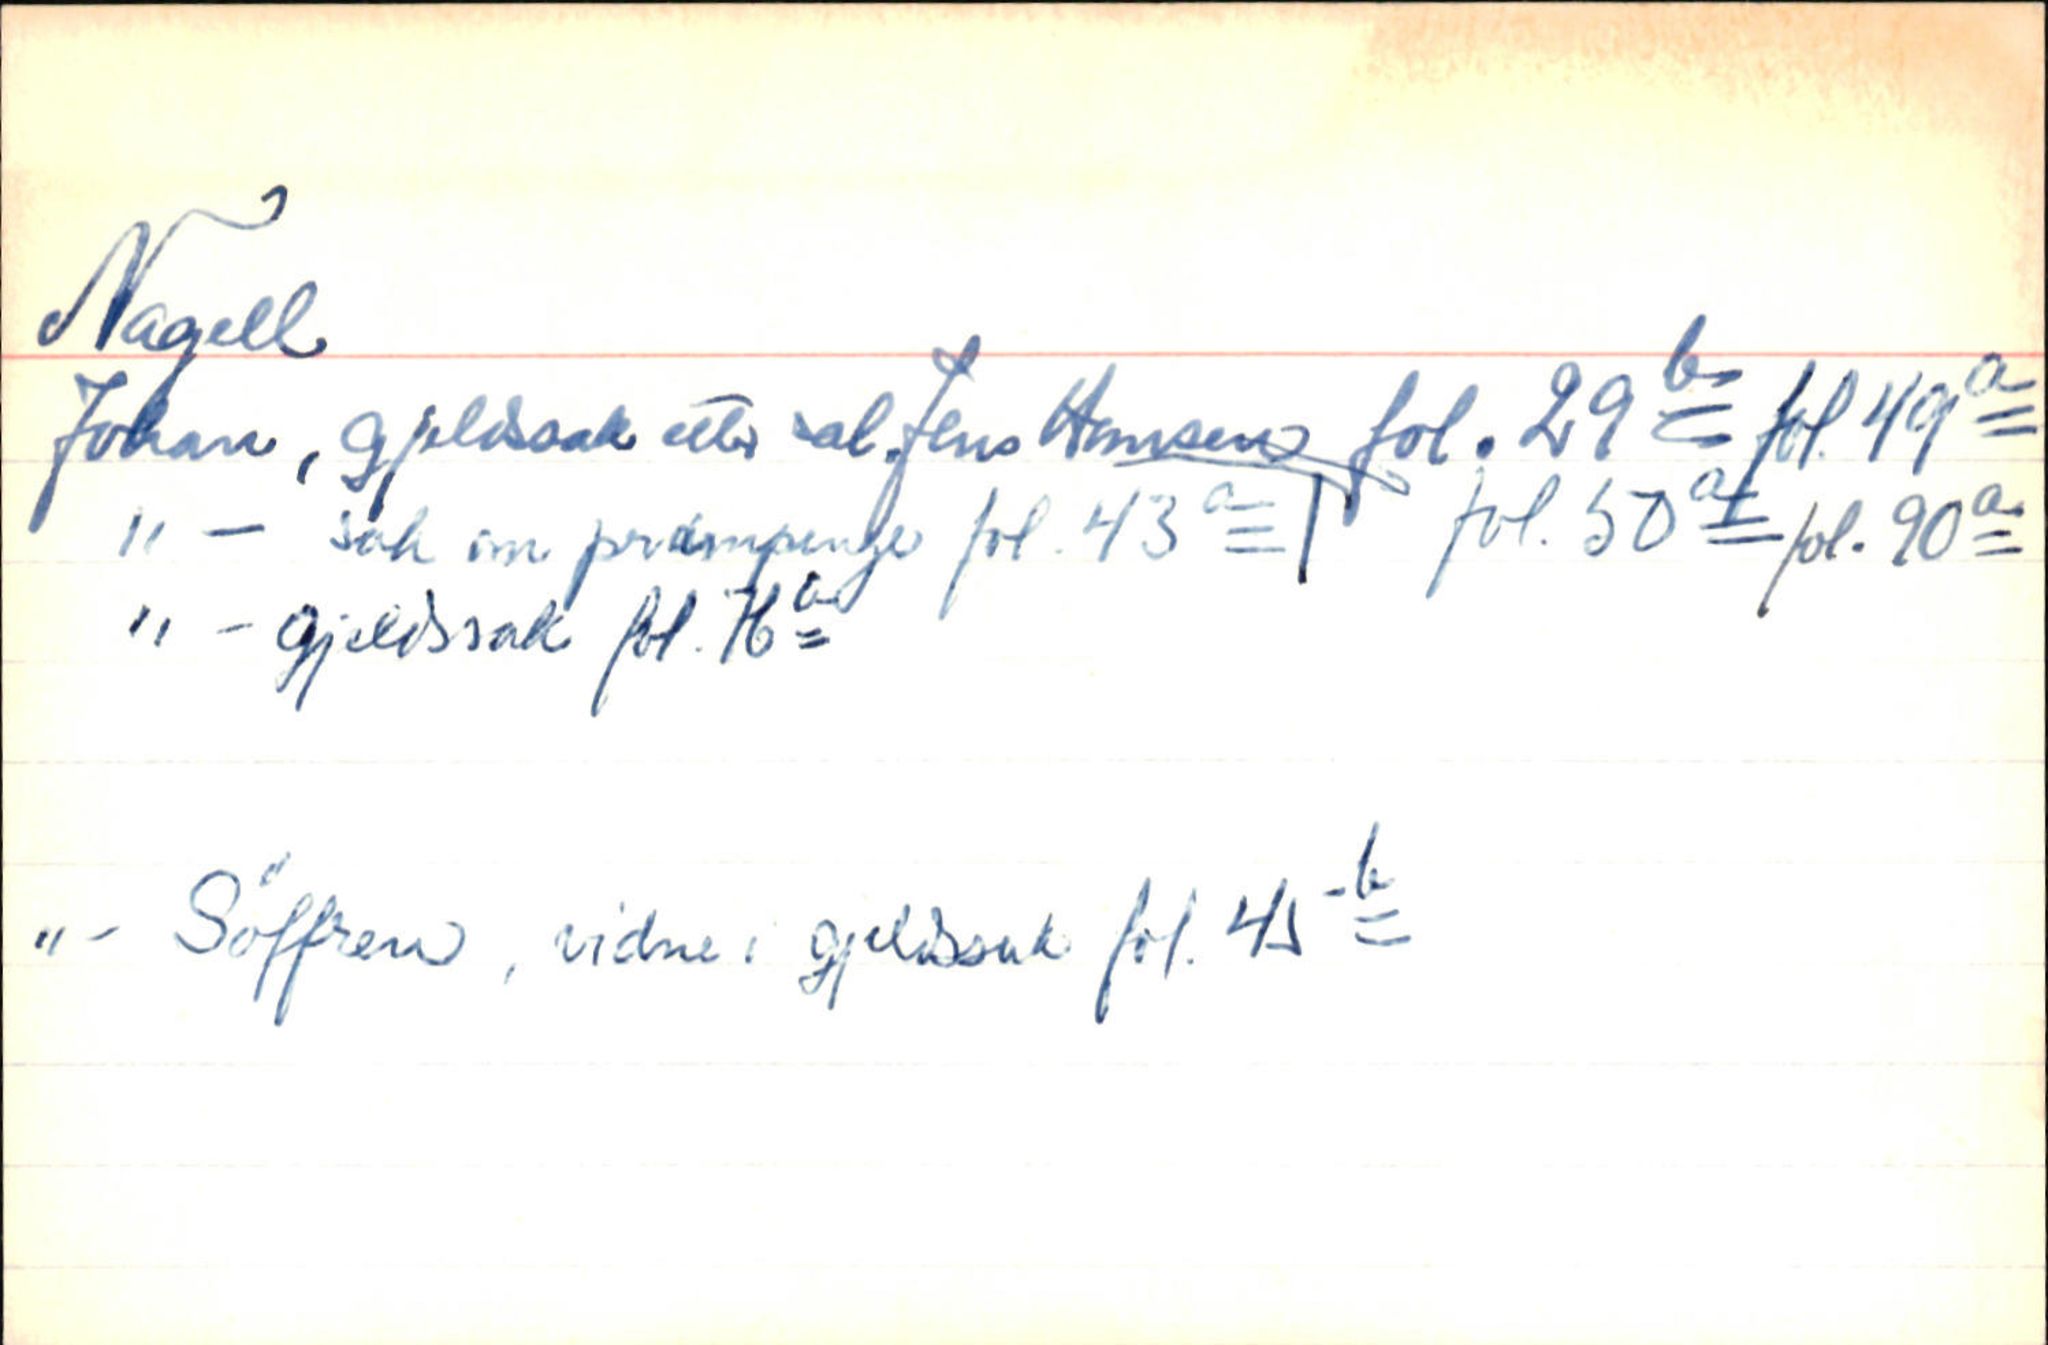 Nagell
Johan, gjeldssak etter sal. Jens Hansen fol. 29b fol. 49a
" — sak om prampenge fol. 43a fol. 50a fol. 90a
" - gjeldssak fol. 76a
" - Söffren, vidne i gjeldssak fol. 45b